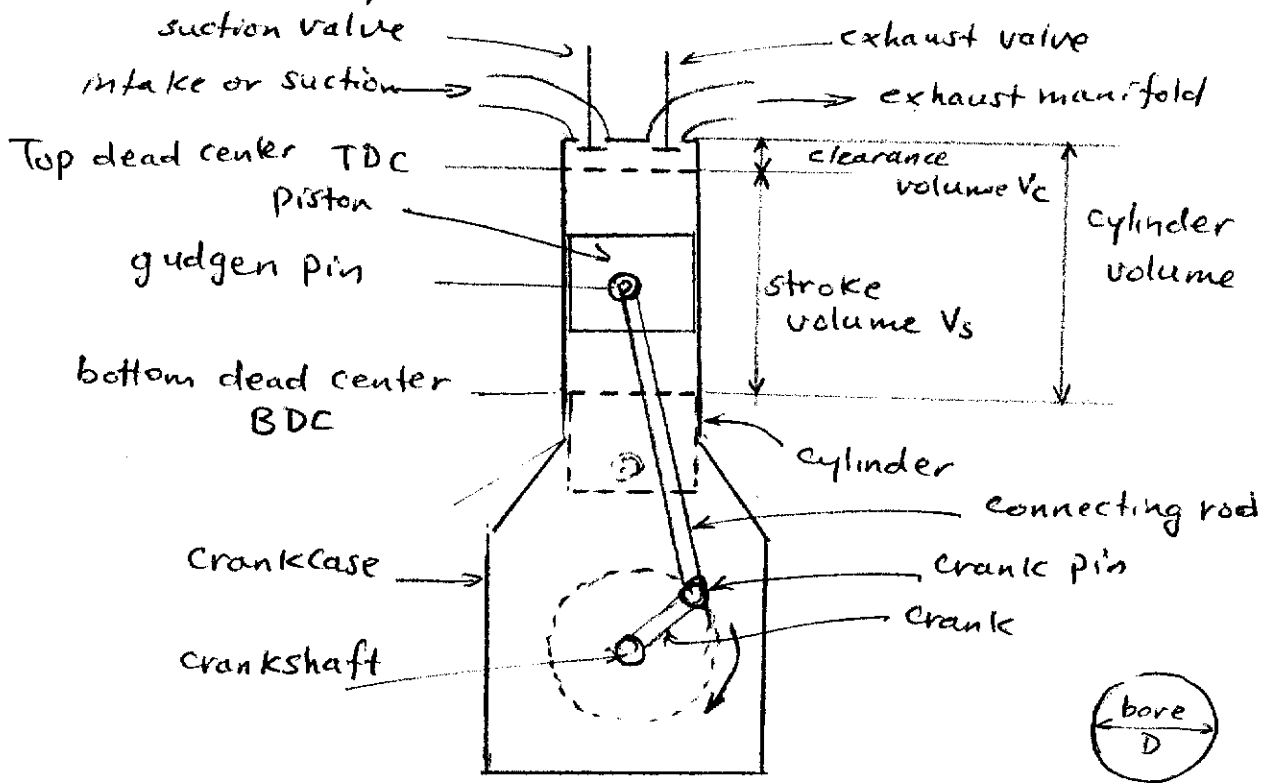 suction valve
exhaust valve
intake or suction
exhaust manifold
Top dead center TDC
clearance
volume Vc
piston
cylinder
volume
gudgen pin
stroke
volume Vs
bottom dead center
BDC
cylinder
connecting rod
crankcase
crank pin
crank
crankshaft
bore
D